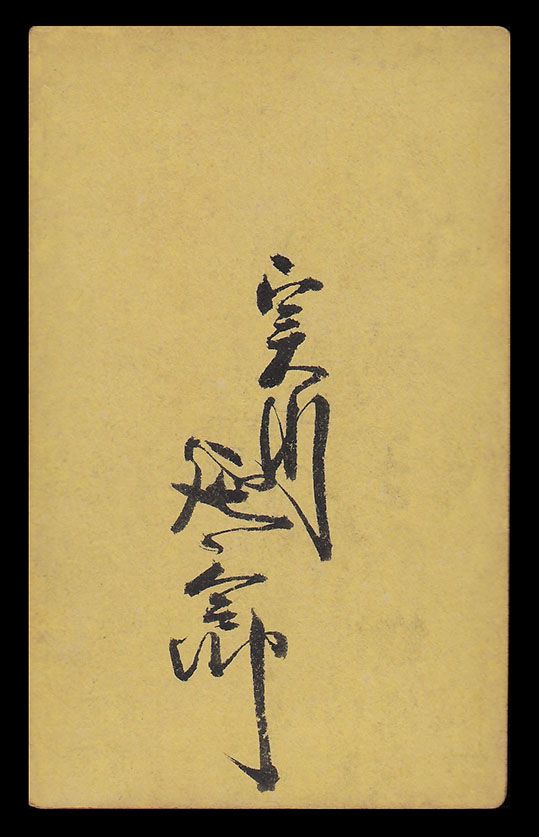 実川
延郎